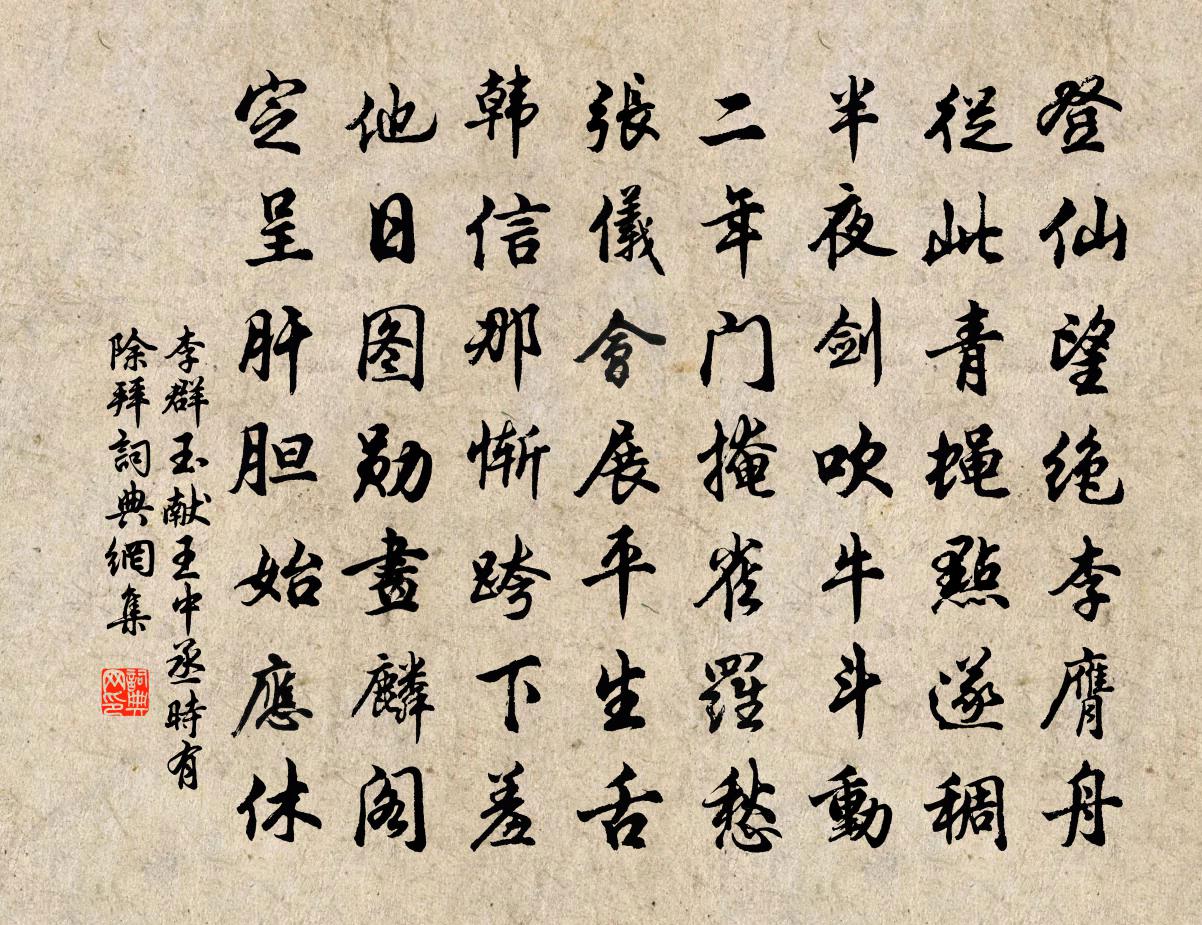 登仙望绝李膺舟
従此青蝇點遂稠
半夜剑吹牛斗動
二年门掩雀羅愁
張儀會展平生舌
韩信那惭跨下羞
他日图勋畫麟阁
定呈肝胆始應休
李群玉献王中丞時有
除拜詞典網集
詞典网印